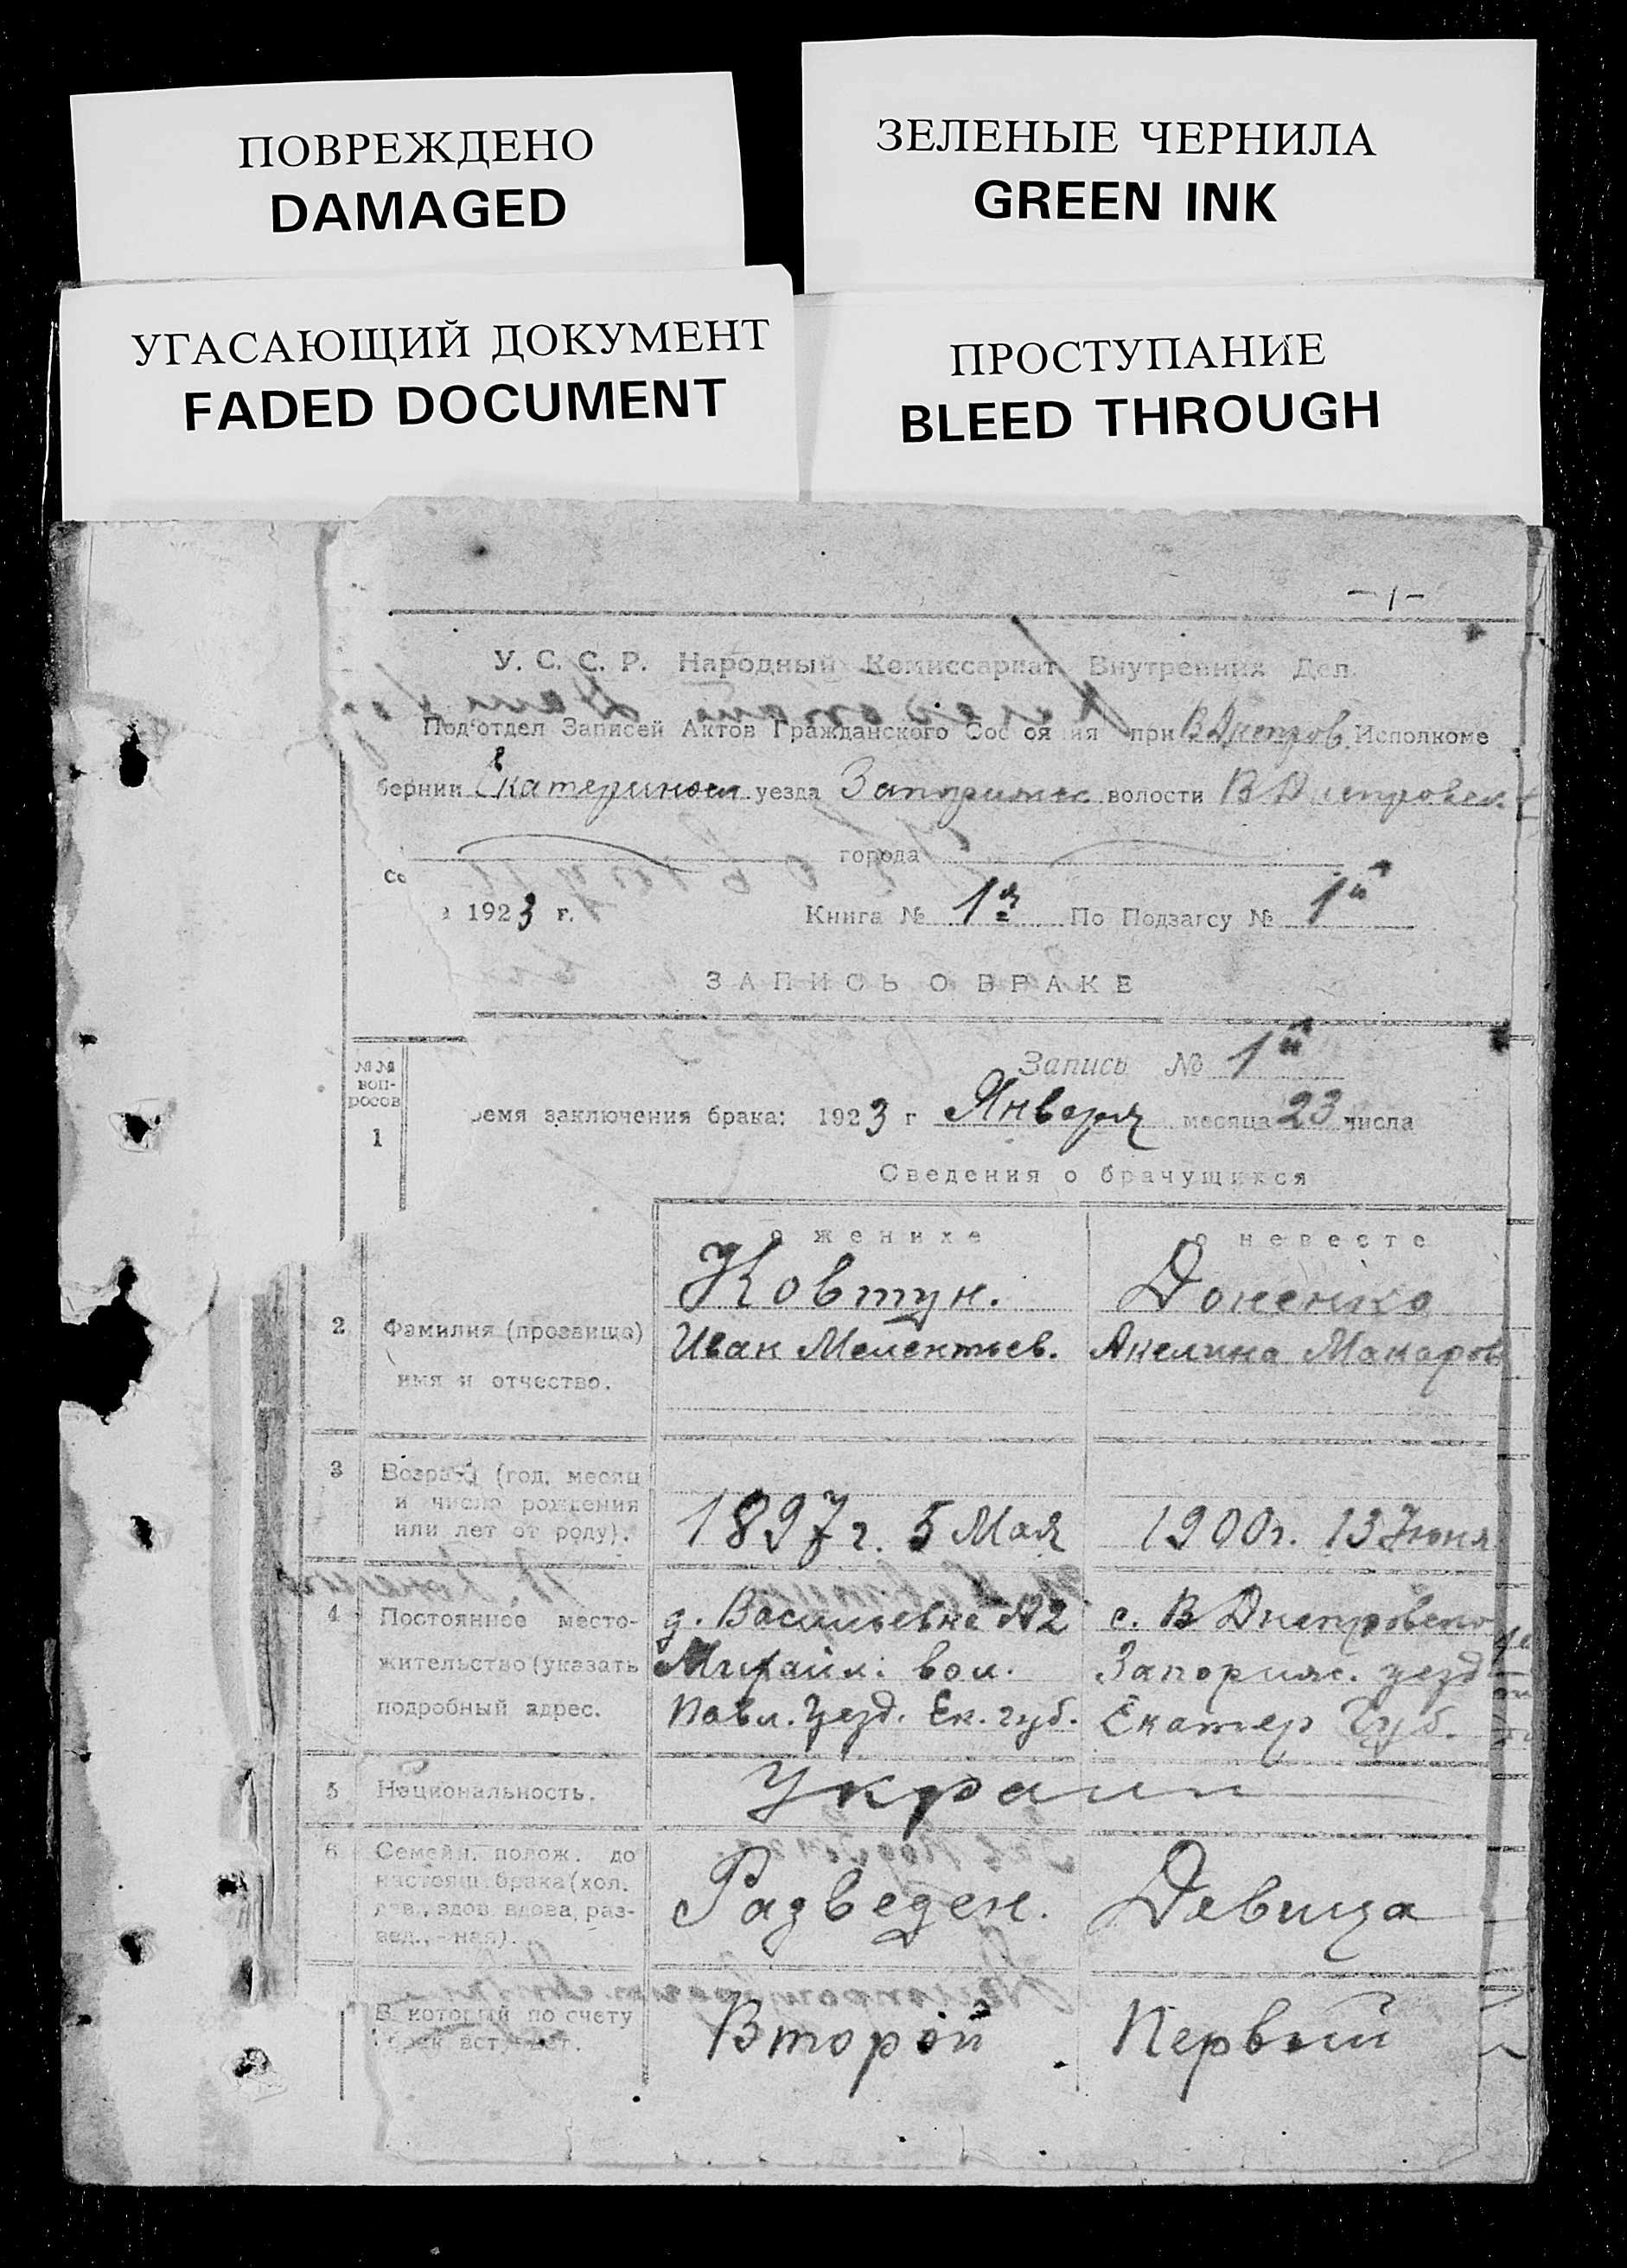 ПОВРЕЖДЕНО
DAMAGED
ЗЕЛЕНЫЕ ЧЕРНИЛА
GREEN INK
УГАСАЮЩИЙ ДОКУМЕНТ
FADED DOCUMENT
ПРОСТУПАНИЕ
BLEED THROUGH
- 1 -
У. С. С. Р. Народный Комиссариат Внутренних Дел.
Под'отдел Записей Актов Гражданского Состояния при В Днепров. Исполкоме
бернии Екатеринослав уезда Запорижск волости В Днепровск.
города
1923 г. Книга № 1я По Подзагсу № 1й
ЗАПИСЬ О БРАКЕ
Запись № 1й
№№ воп-
росов
1
ремя заключения брака: 1923 г Января месяца 23 числа
Сведения о брачущихся
о женихе
о невесте
2
Фамилия (прозвище)
имя и отчество.
Ковтун.
Иван Мелентьев.
Доненко
Акелина Макаров
3
Возраст (год, месяц
и число рождения
или лет от роду).
1897 г. 5 Мая
1900 г. 13 Июня
4
Постоянное место-
жительство (указать
подробный адрес.
д. Васильевке №2
Михайл. вол.
Павл. Уезд. Ек. губ.
с. В Днепровско
Запорижс. уезд
Екатер Губ.
5
Национальность.
Украин
6
Семейн. полож. до
настоящ. брака (хол.
дев., вдов. вдова, раз-
вед., -ная).
Разведен.
Девица
В который по счету
Второй
Первый